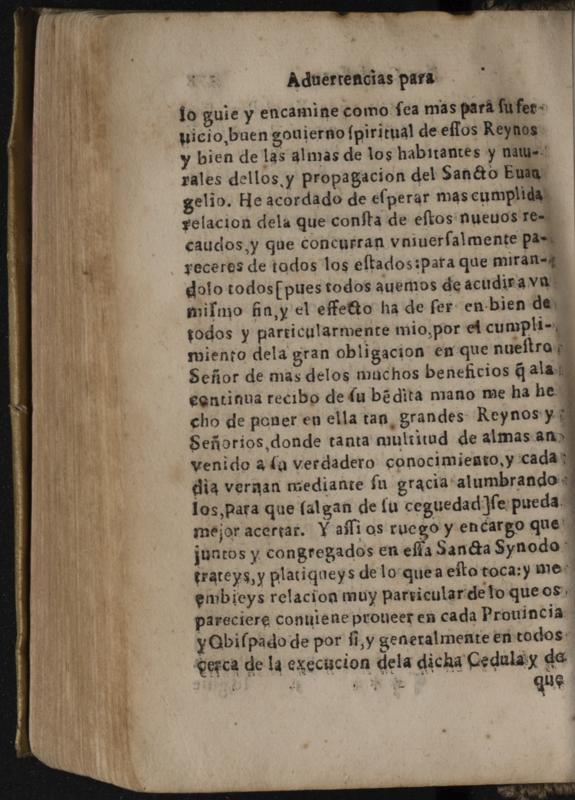 Aduertencias para
lo guie y encamine como ſea mas para ſu ſer-
uicio, buen gouierno ſpiritual de eſſos Reynos
y bien de las almas de los habitantes y natu-
rales dellos, y propagacion del Sancto Euan
gelio. He acordado de eſperar mas cumplida
relacion dela que conſta de eſtos nueuos re-
caudos, y que concurran vniuerſalmente pa-
receres de todos los eſtados: para que miran-
dolo todos [pues todos auemos de acudir a vn
miſmo fin, y el effecto ha de ſer en bien de
todos y particularmente mio, por el cumpli-
miento dela gran obligacion en que nueſtro
Señor de mas delos muchos beneficios q̃ ala
continua recibo de ſu bẽdita mano me ha he
cho de poner en ella tan grandes Reynos y
Señorios, donde tanta multitud de almas an
venido a ſu verdadero conocimiento, y cada
dia vernan mediante ſu gracia alumbrando
los, para que ſalgan de ſu ceguedad] ſe pueda
mejor acertar. Y aſſi os ruego y encargo que
juntos y congregados en eſſa Sancta Synodo
trateys, y platiqueys de lo que a eſto toca: y me
embieys relacion muy particular de lo que os
pareciere conuiene proueer en cada Prouincia
y Obiſpado de por ſi, y generalmente en todos
cerca de la execucion dela dicha Cedula y de
que